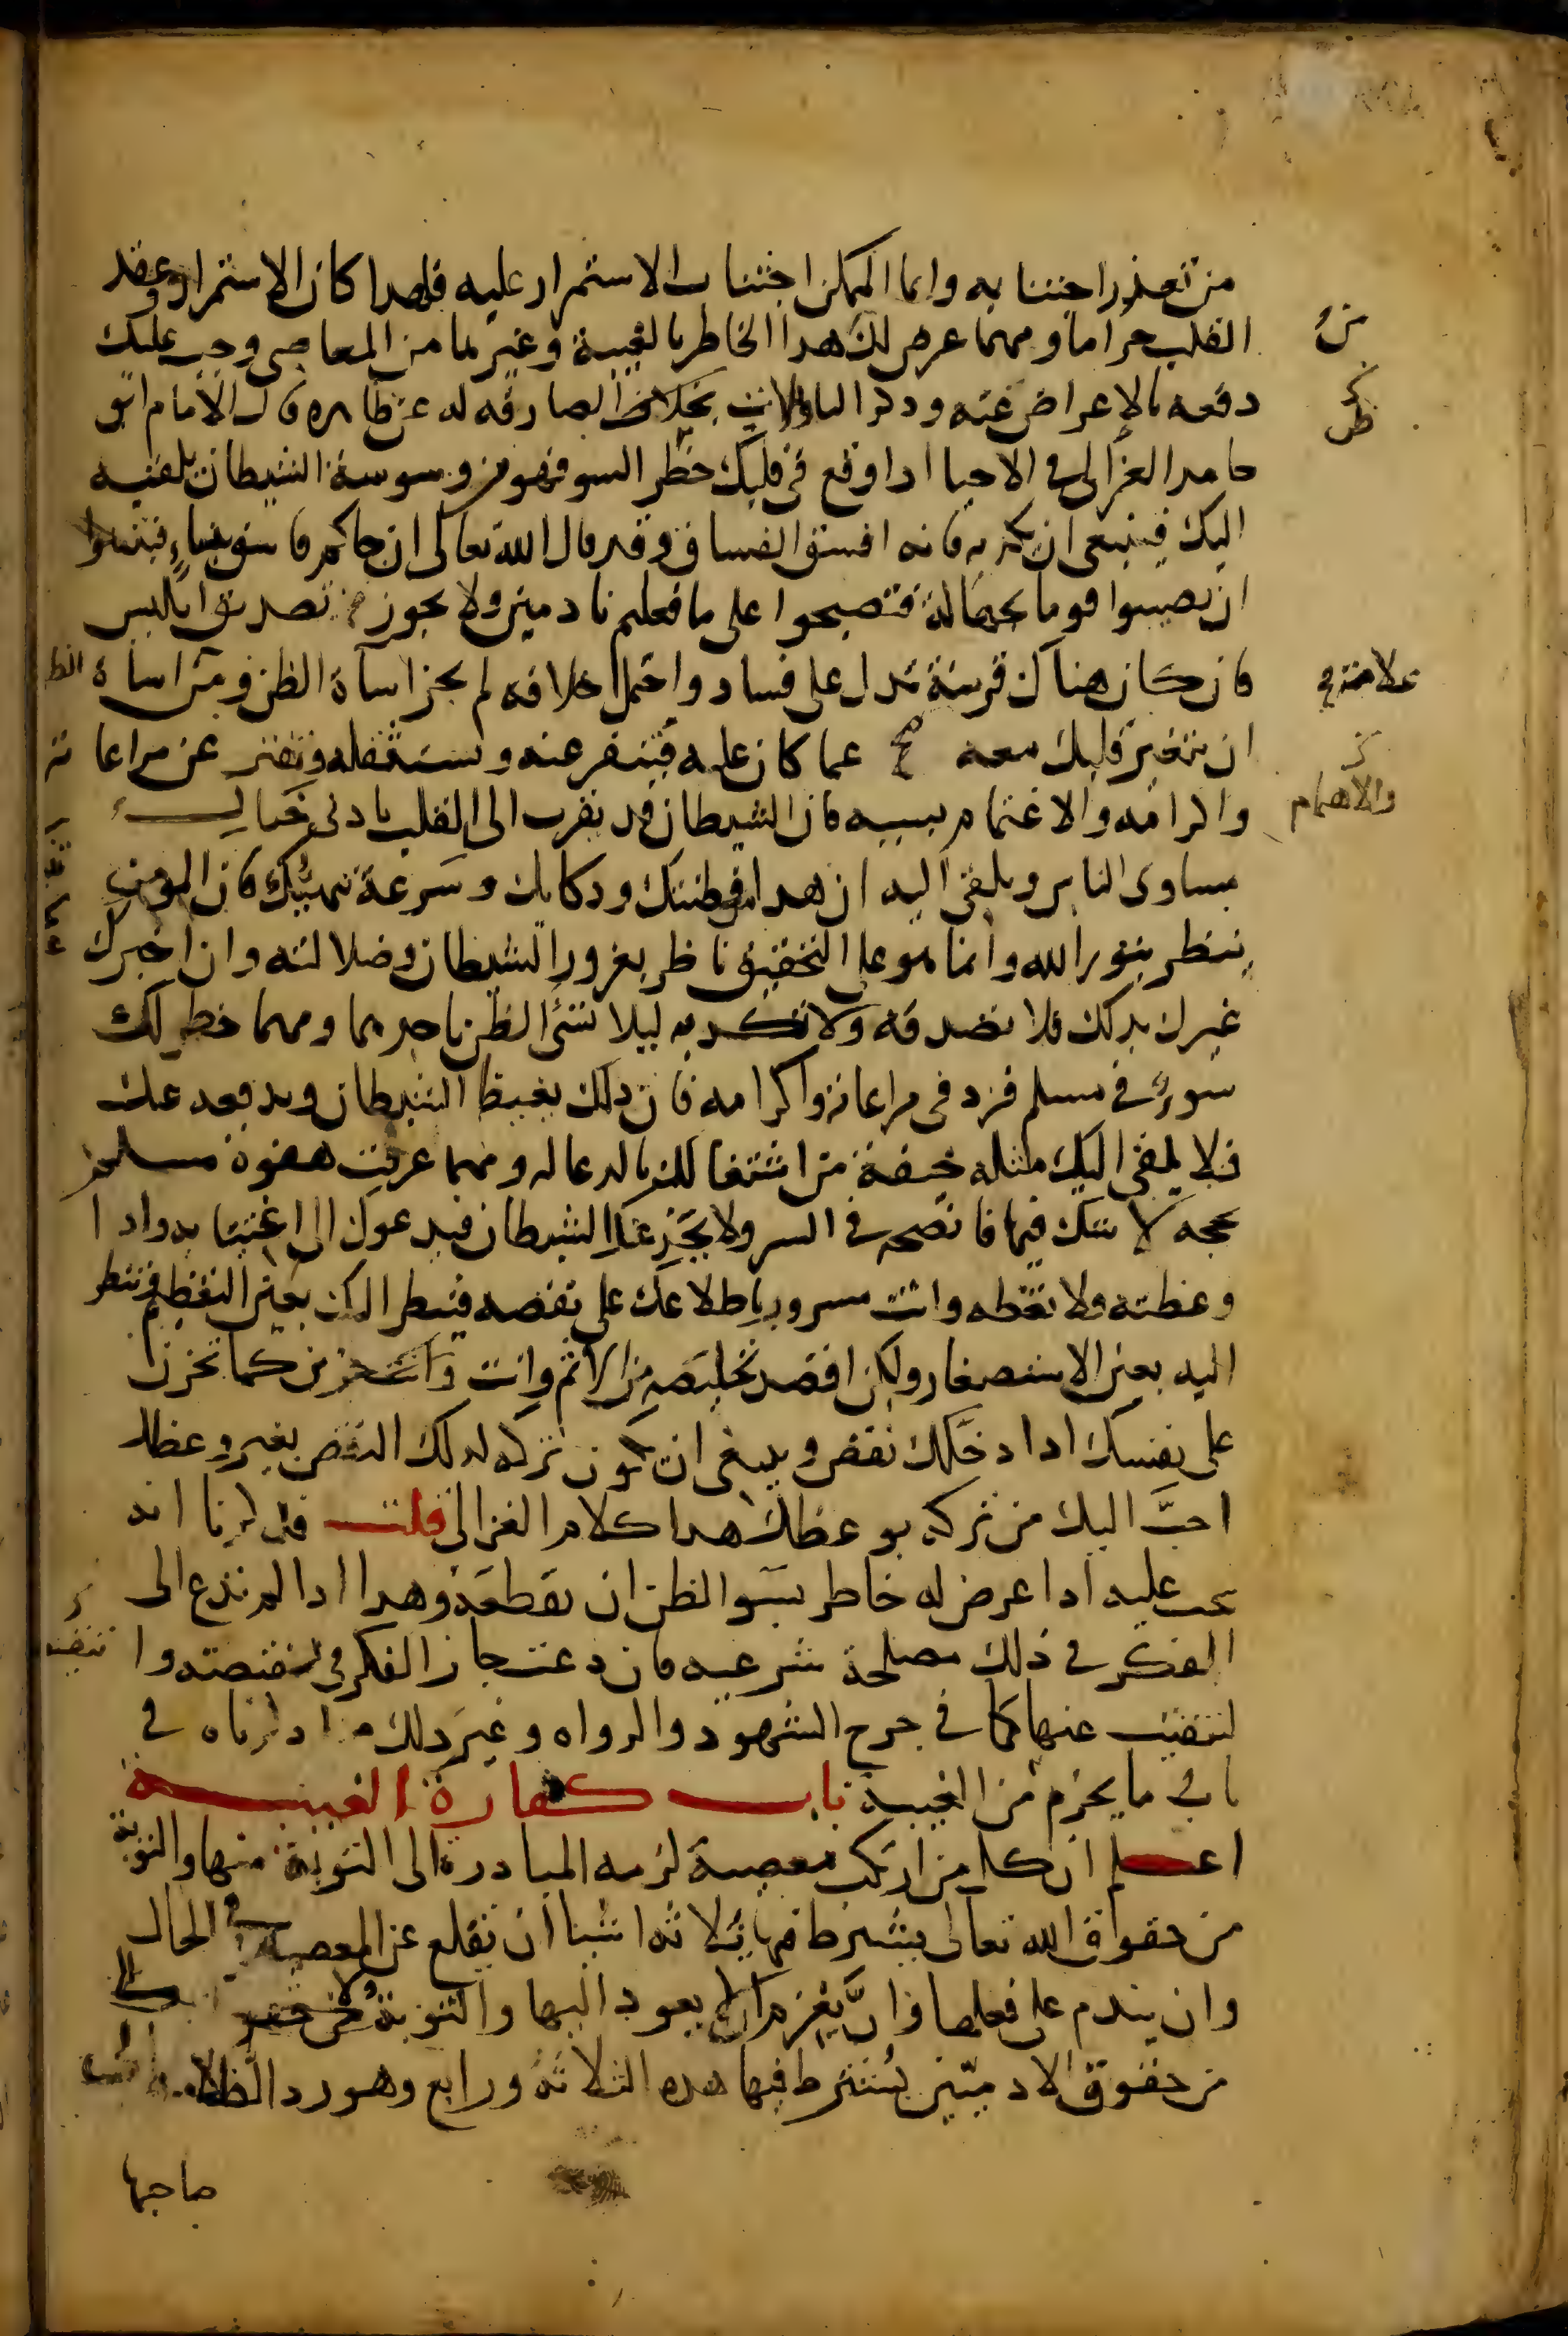 من تعذر اجتنابه وانما الممكن اجتناب الاستمرار عليه فلهذا كان الاستمرار وعقد
القلب حراما ومهما عرض لك هذا الخاطر بالغيبة وغيرها من المعاصي وجب عليك
دفعه بالإعراض عنه وذكر التاويلات الصارفه له عن ظاهره قال الامام ابو
حامد الغزالي في الاحيا اذا وقع في قلبك خطر السو فهو من وسوسة الشيطان يلقيه
اليك فينبغي ان تكذبه فانه افسق الفساق وقد قال الله تعالى ان جاكم فاسق بنباء فتبينوا
ان تصيبوا قوما بجهالة فتصبحوا على ما فعلتم نادمين ولا يجوز تصديق ابليس
فان كان هناك قرينة تدل على فساد واحتمل خلافه لم يجز اساة الظن ومن اساة الظن
ان يتغير قلبك معه عما كان عليه فتنفر عنه وتستثقله وتفتر عن مراعاته
واكرامه والاغتمام بسببه فان الشيطان قد يقرب الى القلب بادنى خيال
مساوى الناس ويلقي اليه ان هذا من فطنتك وذكايك وسرعة تنبهك فان المومن
ينظر بنور الله وانما هو على التحقيق ناظر بغرور الشيطان وضلالته وان اخبرك
غيرك بذلك فلا تصدقه ولا تكذبه ليلا تسئ الظن باحدهما ومهما خطر لك
سوء في مسلم فزد في مراعاته واكرامه فان ذلك يغيظ الشيطان ويدفعه عنك
فلا يلقي اليك مثله خيفة من اشتغالك بالدعا له ومهما عرفت هفوة مسلم
بحجة لا شك فيها فانصحه في السر ولا يخدعنك الشيطان فيدعوك الى اغتيابه واذا
وعظته فلا تعظه وانت مسرور باطلاعك على نقصه فينظر اليك بعين التعظيم وتنظر
اليه بعين الاستصغار ولكن اقصد تخليصه من الاثم وانت حزين كما تحزن
على نفسك اذا دخلك نقص وينبغي ان يكون تركه لذلك النقص بغير وعظك
احبَّ اليك من تركه بوعظك هذا كلام الغزالي قلت قد ذكرنا انه
يجب عليه اذا عرض له خاطر بسو الظن ان يقطعه وهذا اذا لم تدع الى
الفكر في ذلك مصلحة شرعيه فان دعت جاز الفكر في نقيصته وا
لتنقيب عنها كما في جرح الشهود والرواه وغير ذلك مما ذكرناه في
باب ما يحرم من الغيبة باب كفارة الغيبــة
اعلم ان كل من ارتكب معصية لزمه المبادرة الى التوبة منها والتوبة
من حقوق الله تعالى يشترط فيها ثلاثه اشيا ان يقلع عن المعصية في الحال
وان يندم على فعلها وان يعزم ان لا يعود اليها والتوبة
من حقوق الادميين يشترط فيها هذه الثلاثه ورابع وهو رد الظلامه الى
صاحبها
والاهتمام